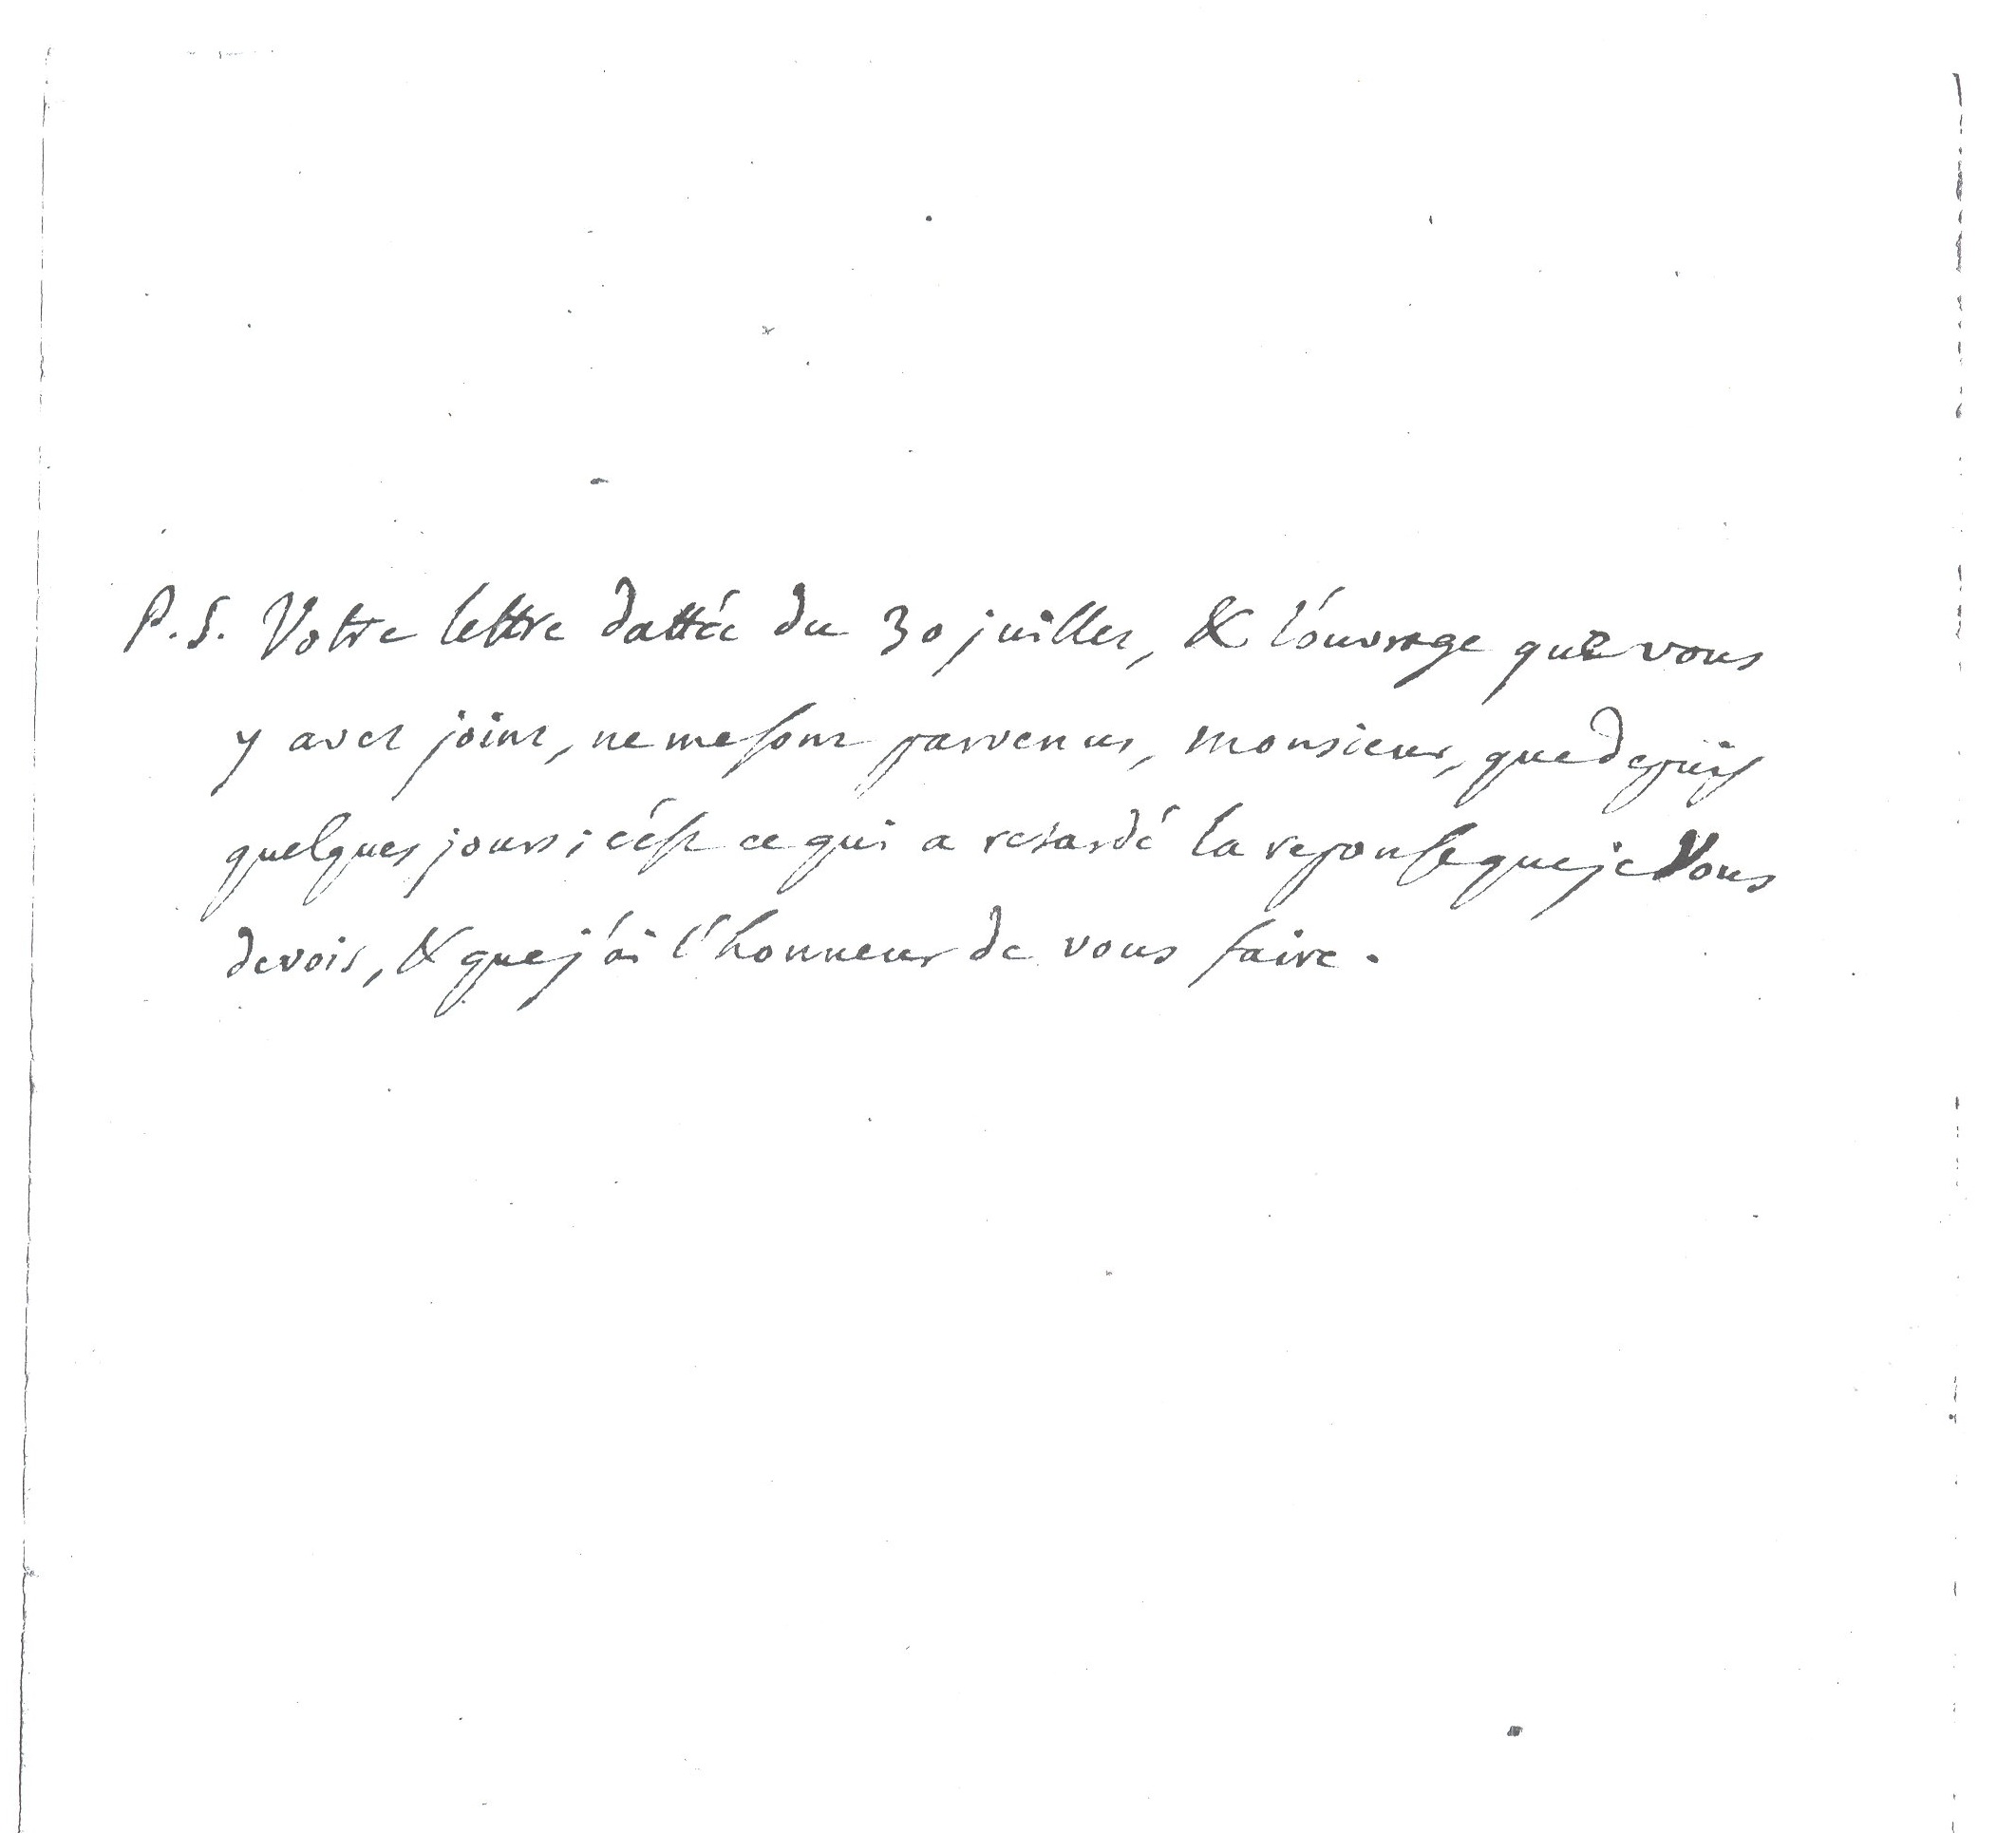 P.S. Votre lettre dattée du 30 juillet, & l'ouvrage que vous
y avez joint, ne me sont parvenus, monsieur, que depuis
quelques jours; c'est ce qui a retardé la reponse que je Vous
devois, & que j'ai l'honneur de vous faire.